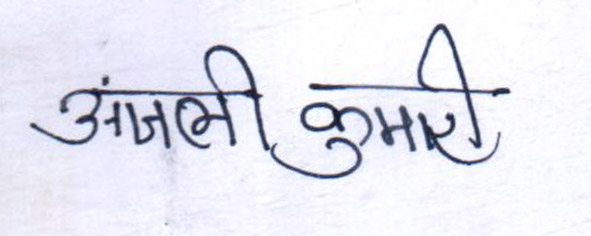 अंजली कुमारी